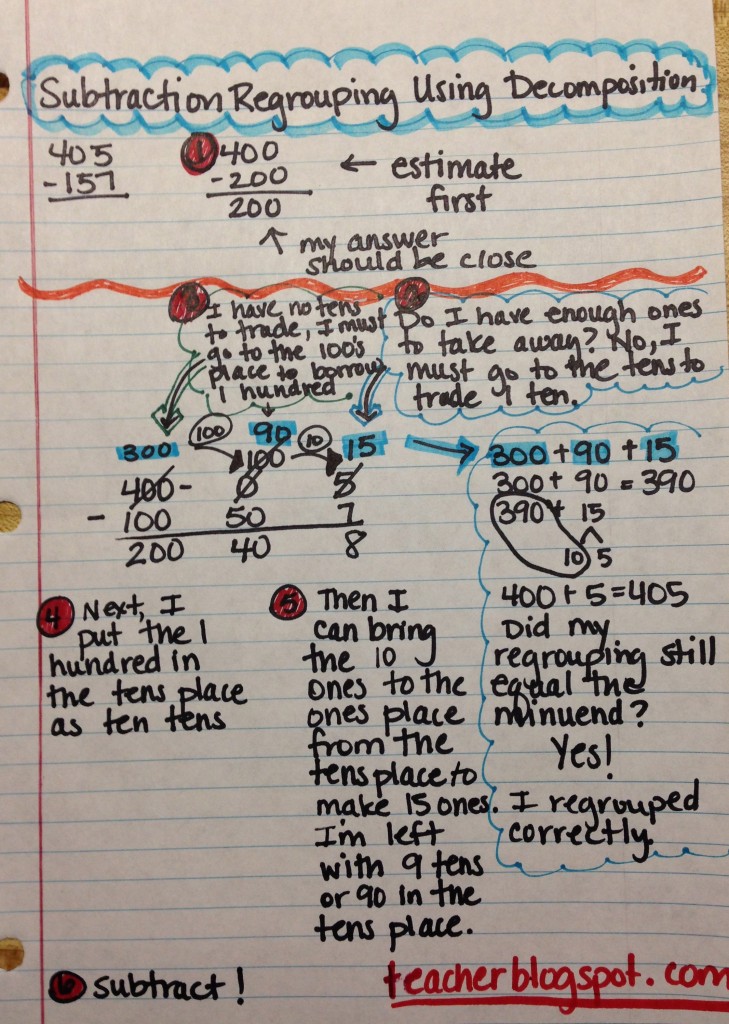 Subtraction Regrouping Using Decomposition
405
-157
1 400
-200
200
← estimate
first
↑ my answer
should be close
3 I have no tens
to trade, I must
go to the 100's
place to borrow
1 hundred.
2
Do I have enough ones
to take away? No, I
must go to the tens to
trade 1 ten.
300 100 90 10 15
100
400 - 0 5
- 100 50 7
200 40 8
→ 300 + 90 + 15
300 + 90 = 390
390 + 15
10 5
400 + 5 = 405
Did my
regrouping still
equal the
minuend?
Yes!
I regrouped
correctly.
4 Next, I
put the 1
hundred in
the tens place
as ten tens
5 Then I
can bring
the 10
ones to the
ones place
from the
tens place to
make 15 ones.
I'm left
with 9 tens
or 90 in the
tens place.
6 Subtract!
teacherblogspot.com